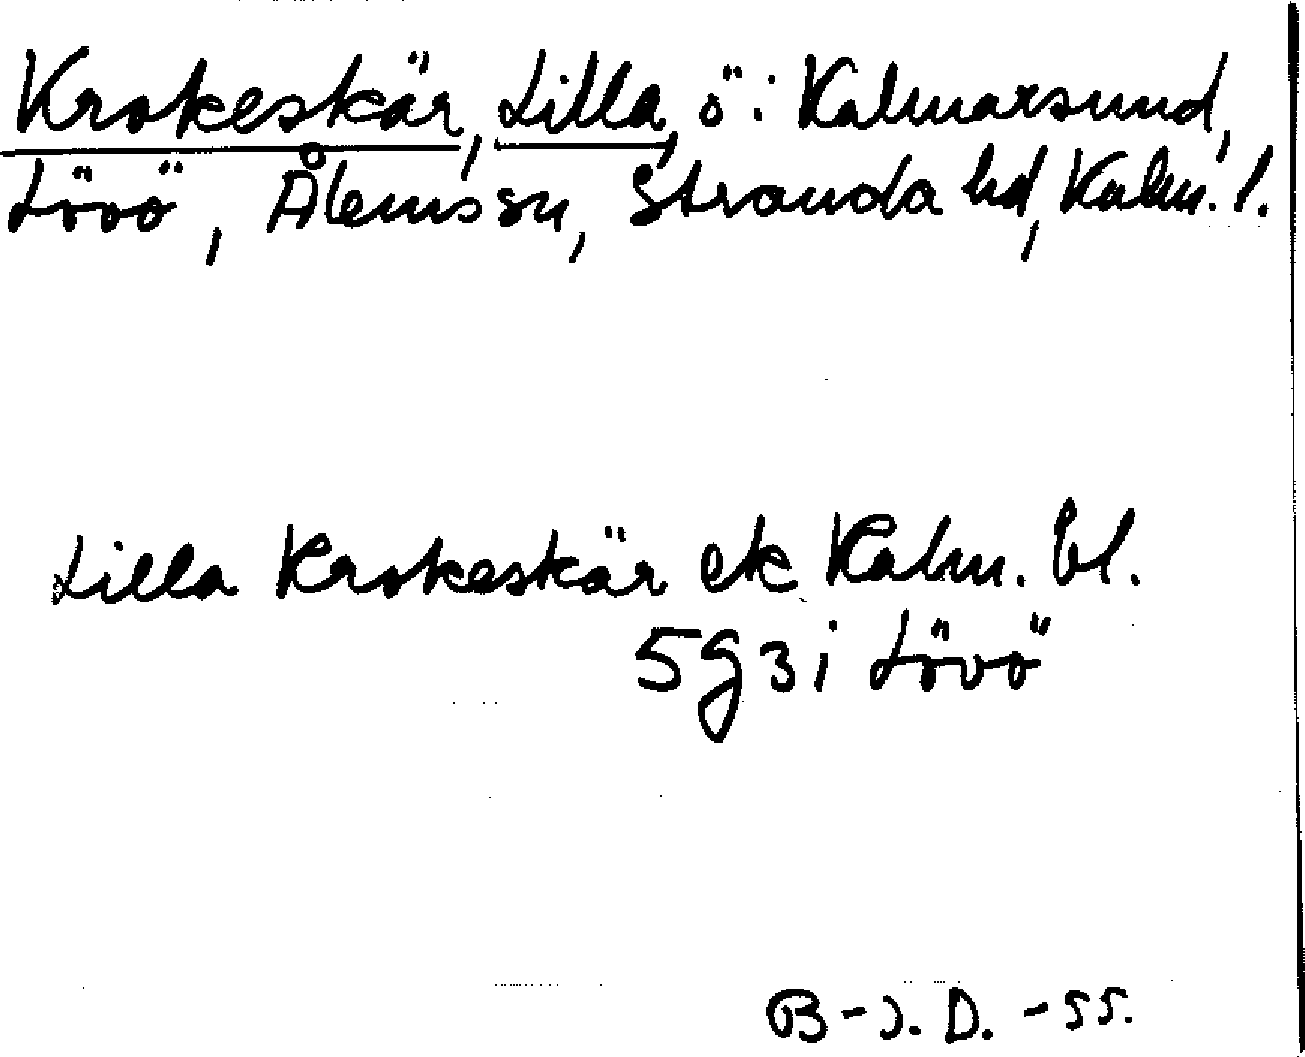 Krokeskär, Lilla, ö i Kalmarsund,
Lövö, Ålems sn, Stranda hd, Kalm. l.
Lilla Krokeskär ek Kalm. bl.
5g3i Lövö
B-J. D. -55.